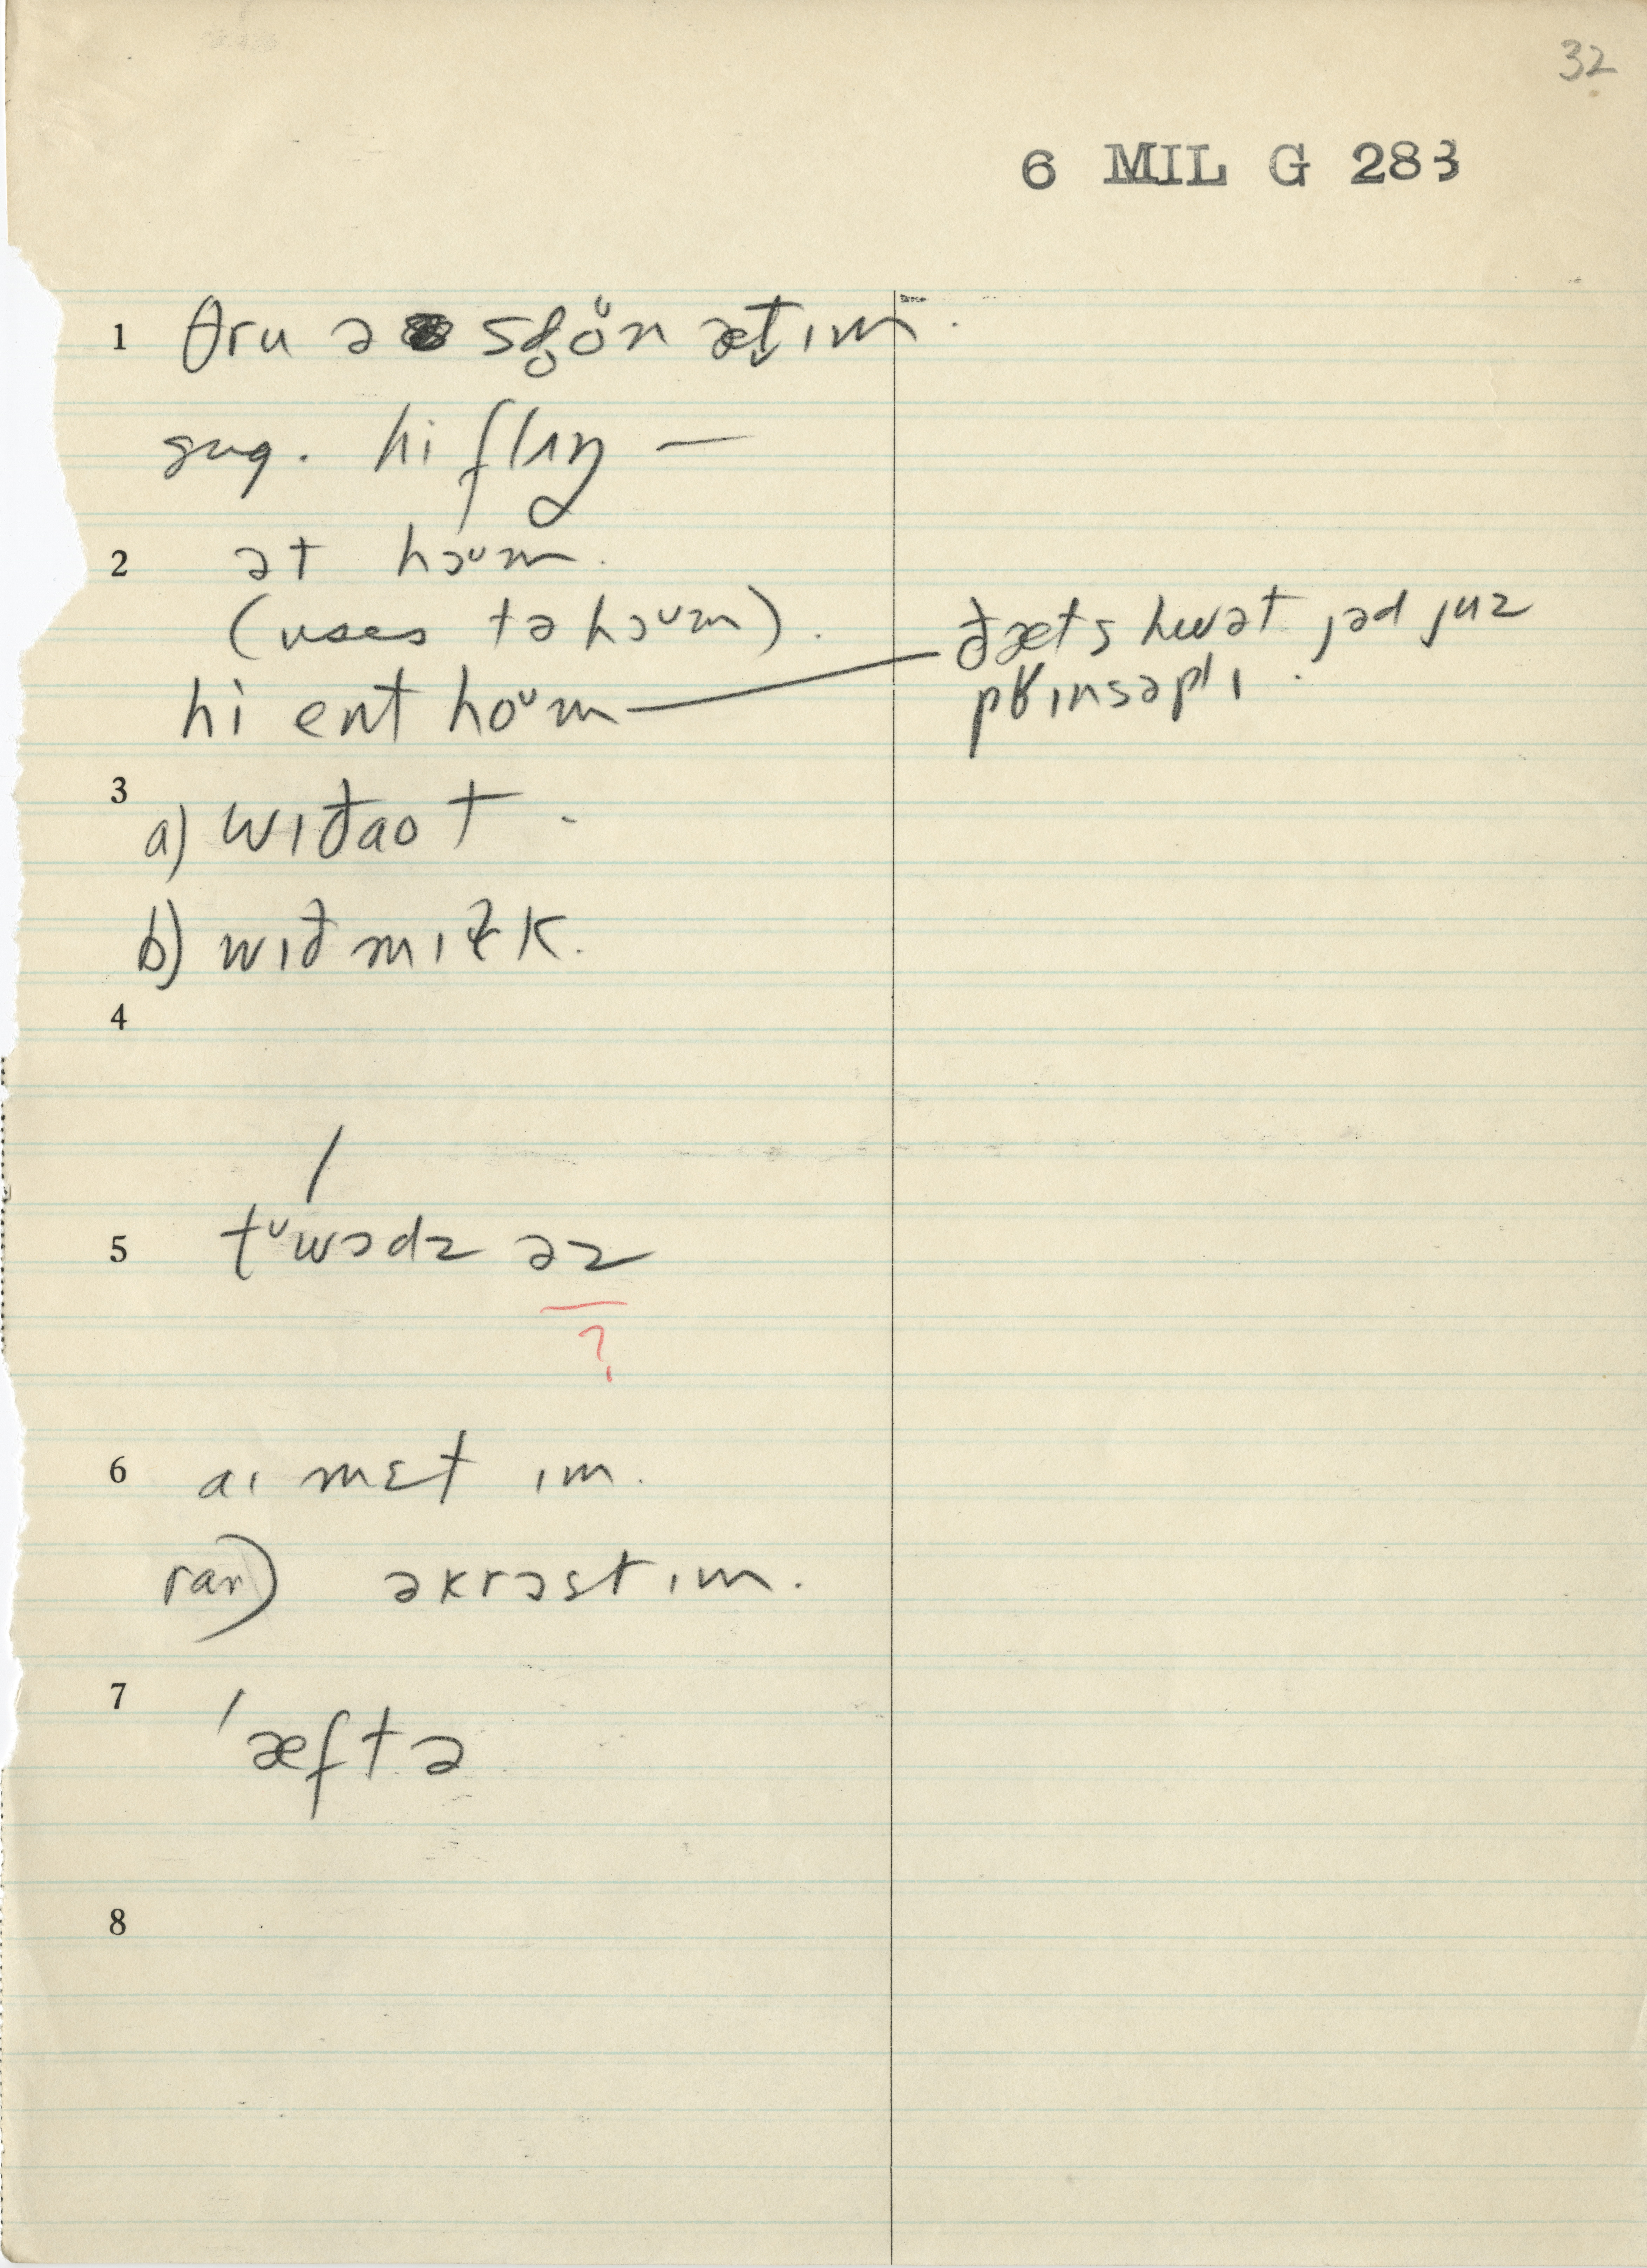 32
6 MIL G 283
1 θru ə sd̥oᵘn æt̬ ɪm.
sug. hi flɪŋ —
2 ət hɔᵘm.
(uses tə hɔᵘm).
hi ent hoᵘm — ðæts hwət jəd juz
prɪnsəplɪ.
3
a) wɪðaot.
b) wɪð mɪɫk.
4
5 tᵘwɔdz əz
?
6 aɪ mɛt ɪm.
ran) əkrɔst ɪm.
7 'æftə
8